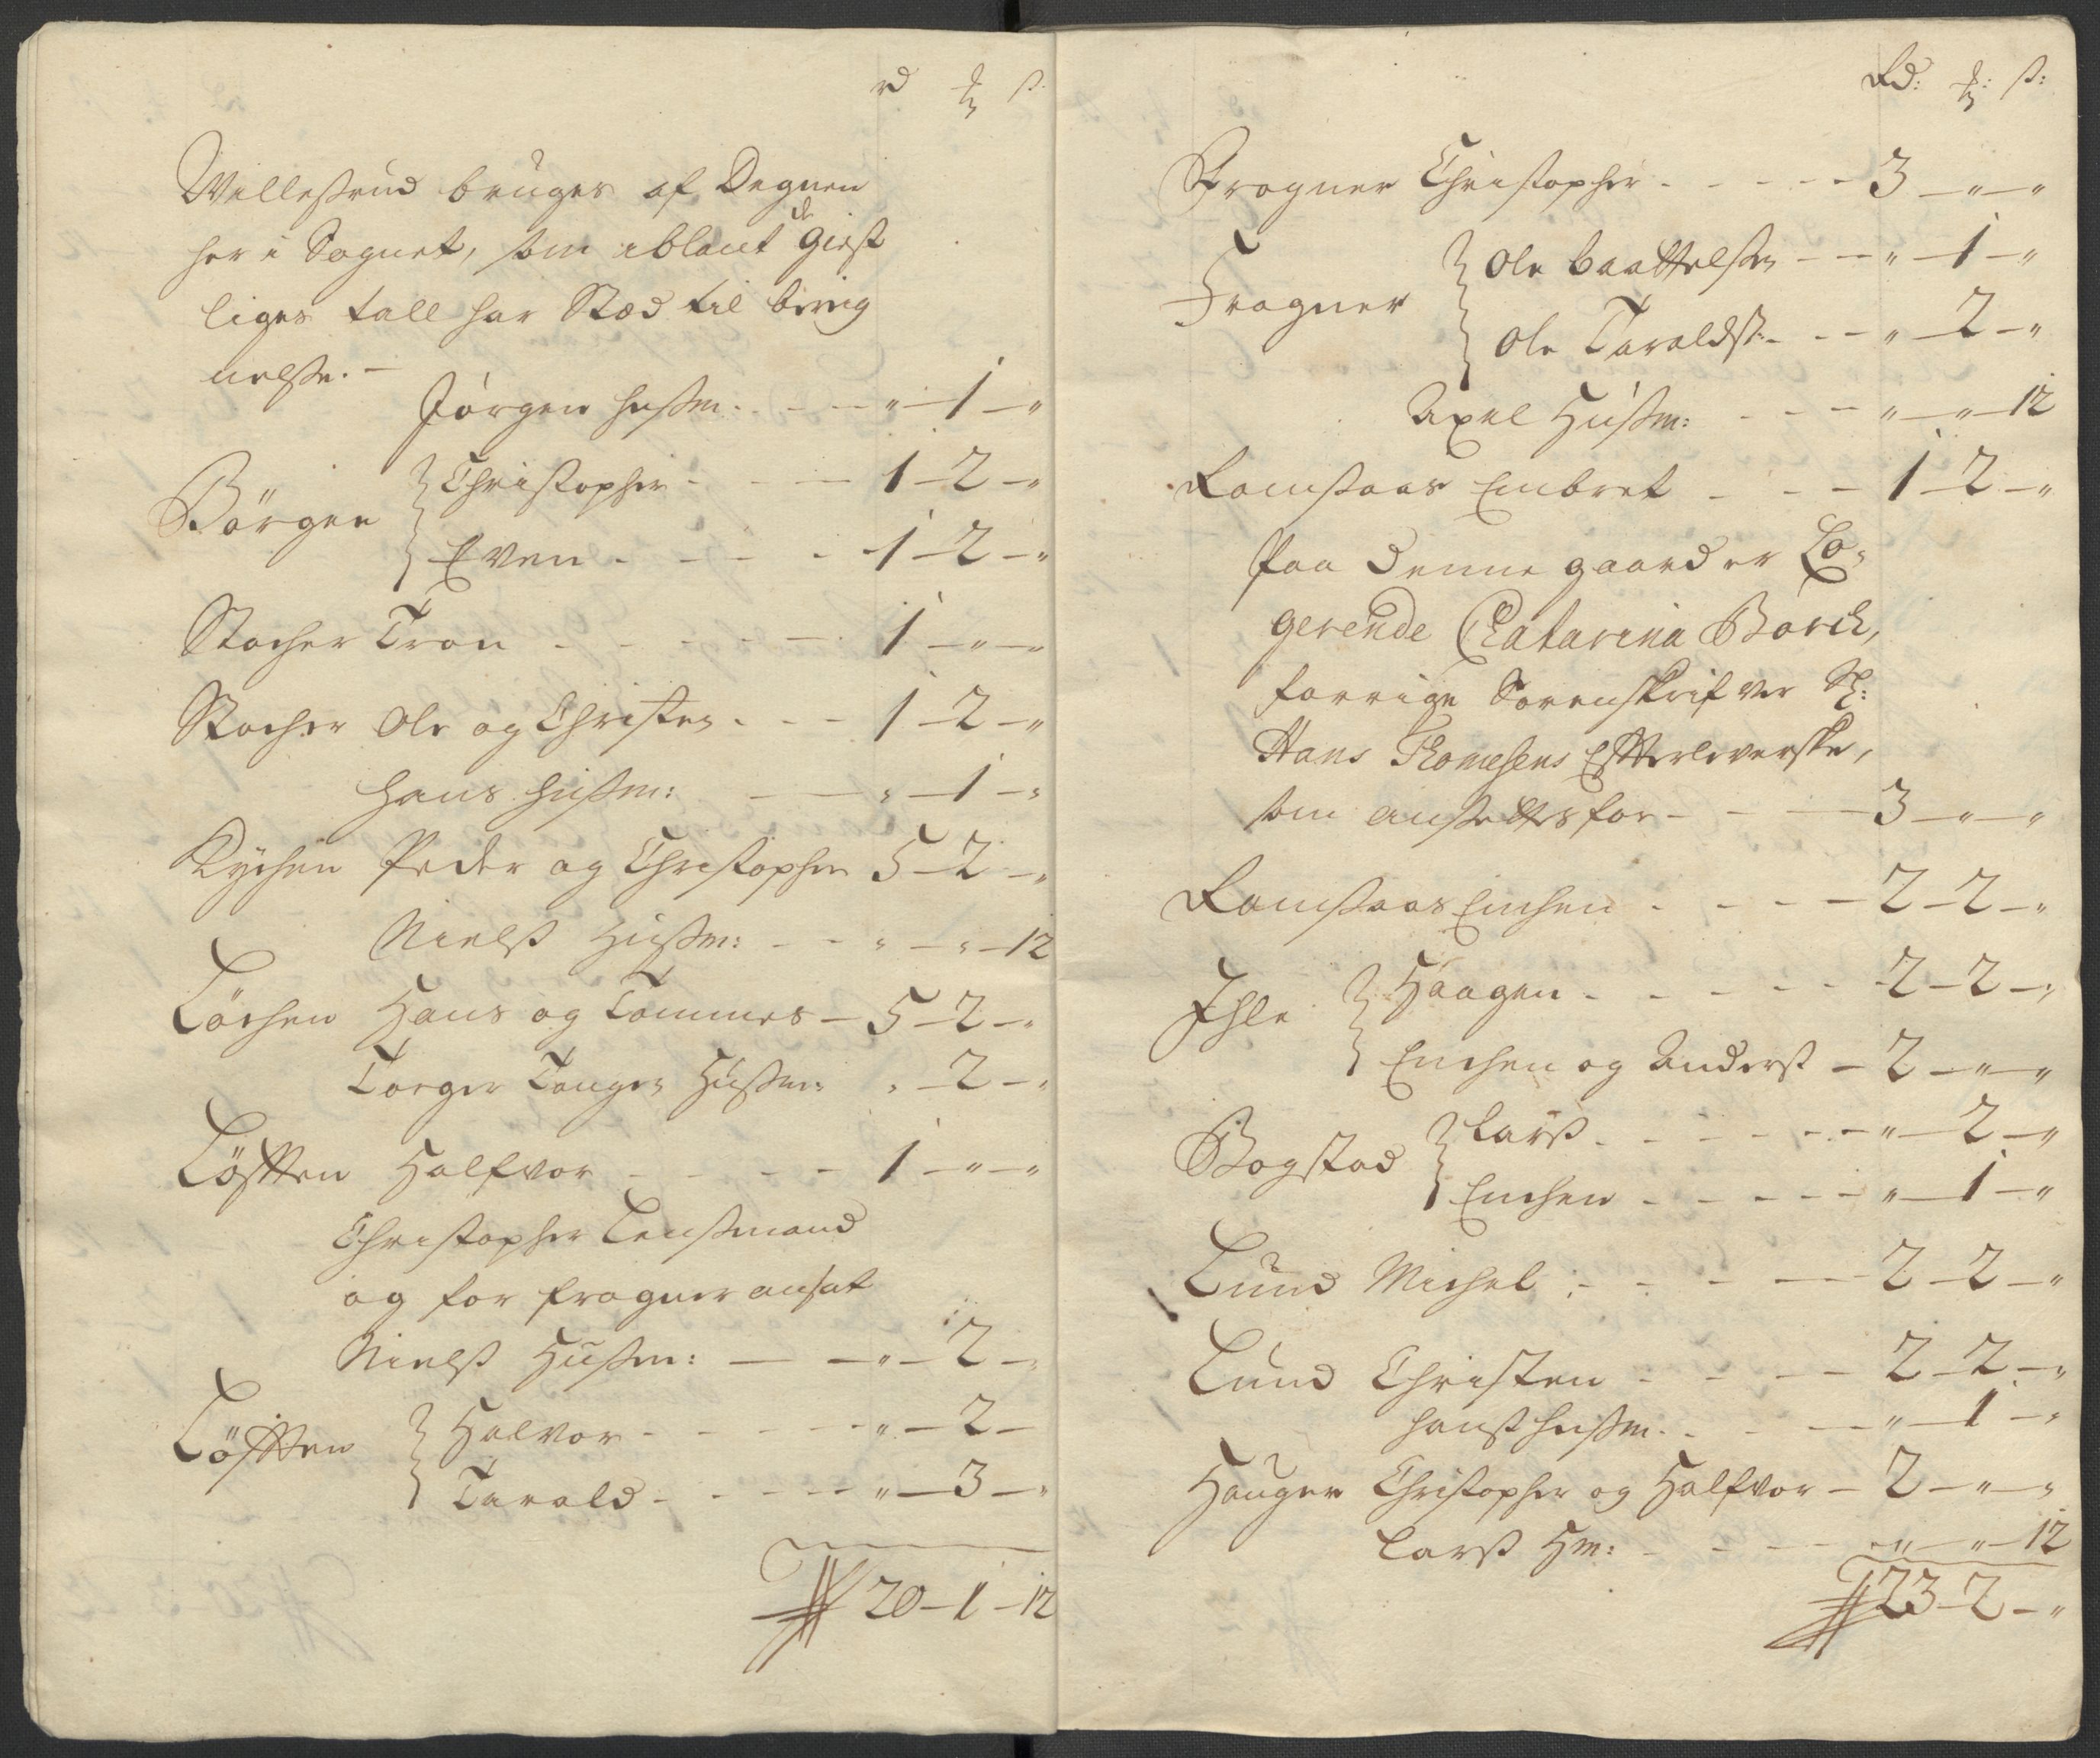 rd ß:
Willestrud bruges af Degnen
her i Sognet, som iblant de Giest
liges tall har Stæd til berig
nelse. –
Jörgen Hußm: – – – " – 1 – "
Börgen { Christopher – – – 1 – 2 – "
{ Even – – – – 1 – 2 – "
Stocher Tron – – – – – 1 – " – "
Stocher Ole og Christen – – – 1 – 2 – "
Hans Hußm: – – " – 1 – "
Kychen Peder og Christopher 5 – 2 – "
Nielß Hußm: – – " – " – 12
Löchen Hans og Tommes – 5 – 2 – "
Torger Tangen Hußm: " – 2 – "
Löfften Halfvor – – – – 1 – " – "
Christopher Lensmand
og for Frogner ansat
Nielß Hußm: – – " – 2 – "
Löfften { Halvor – – – – " – 2 –
{ Tarald – – – – " – 3 – "
20 – 1 – 12
Rd: ß:
Frogner Christopher – – – – – 3 – " – "
Frogner { Ole Baattelsen – – " – 1 – "
{ Ole Taraldsn – – – " – 2 – "
Axel Hußm: – – – " – " – 12
Ramstaas Embret – – – 1 – 2 – "
Paa denne gaard er Lo-
gerende Catarina Borck,
forrige Sorenskrifver Sl:
Hans Thomesens Efterleverske,
som ansettes for – – – 3 – " – "
Ramstaas Enchen – – – – 2 – 2 – "
Ihle { Haagen – – – – – 2 – 2 – "
{ Enchen og Anderß – 2 – " – "
Bogstad { Larß – – – – – – " – 2 – "
{ Enchen – – – – – " – 1 – "
Lund Michel – – – – 2 – 2 – "
Lund Christen – – – – 2 – 2 – "
Hanß Hußm: – – – " – 1 – "
Hauger Christopher og Halfvor – 2 – " – "
Larß Hm: – – – – " – " – 12
23 – 2 – "